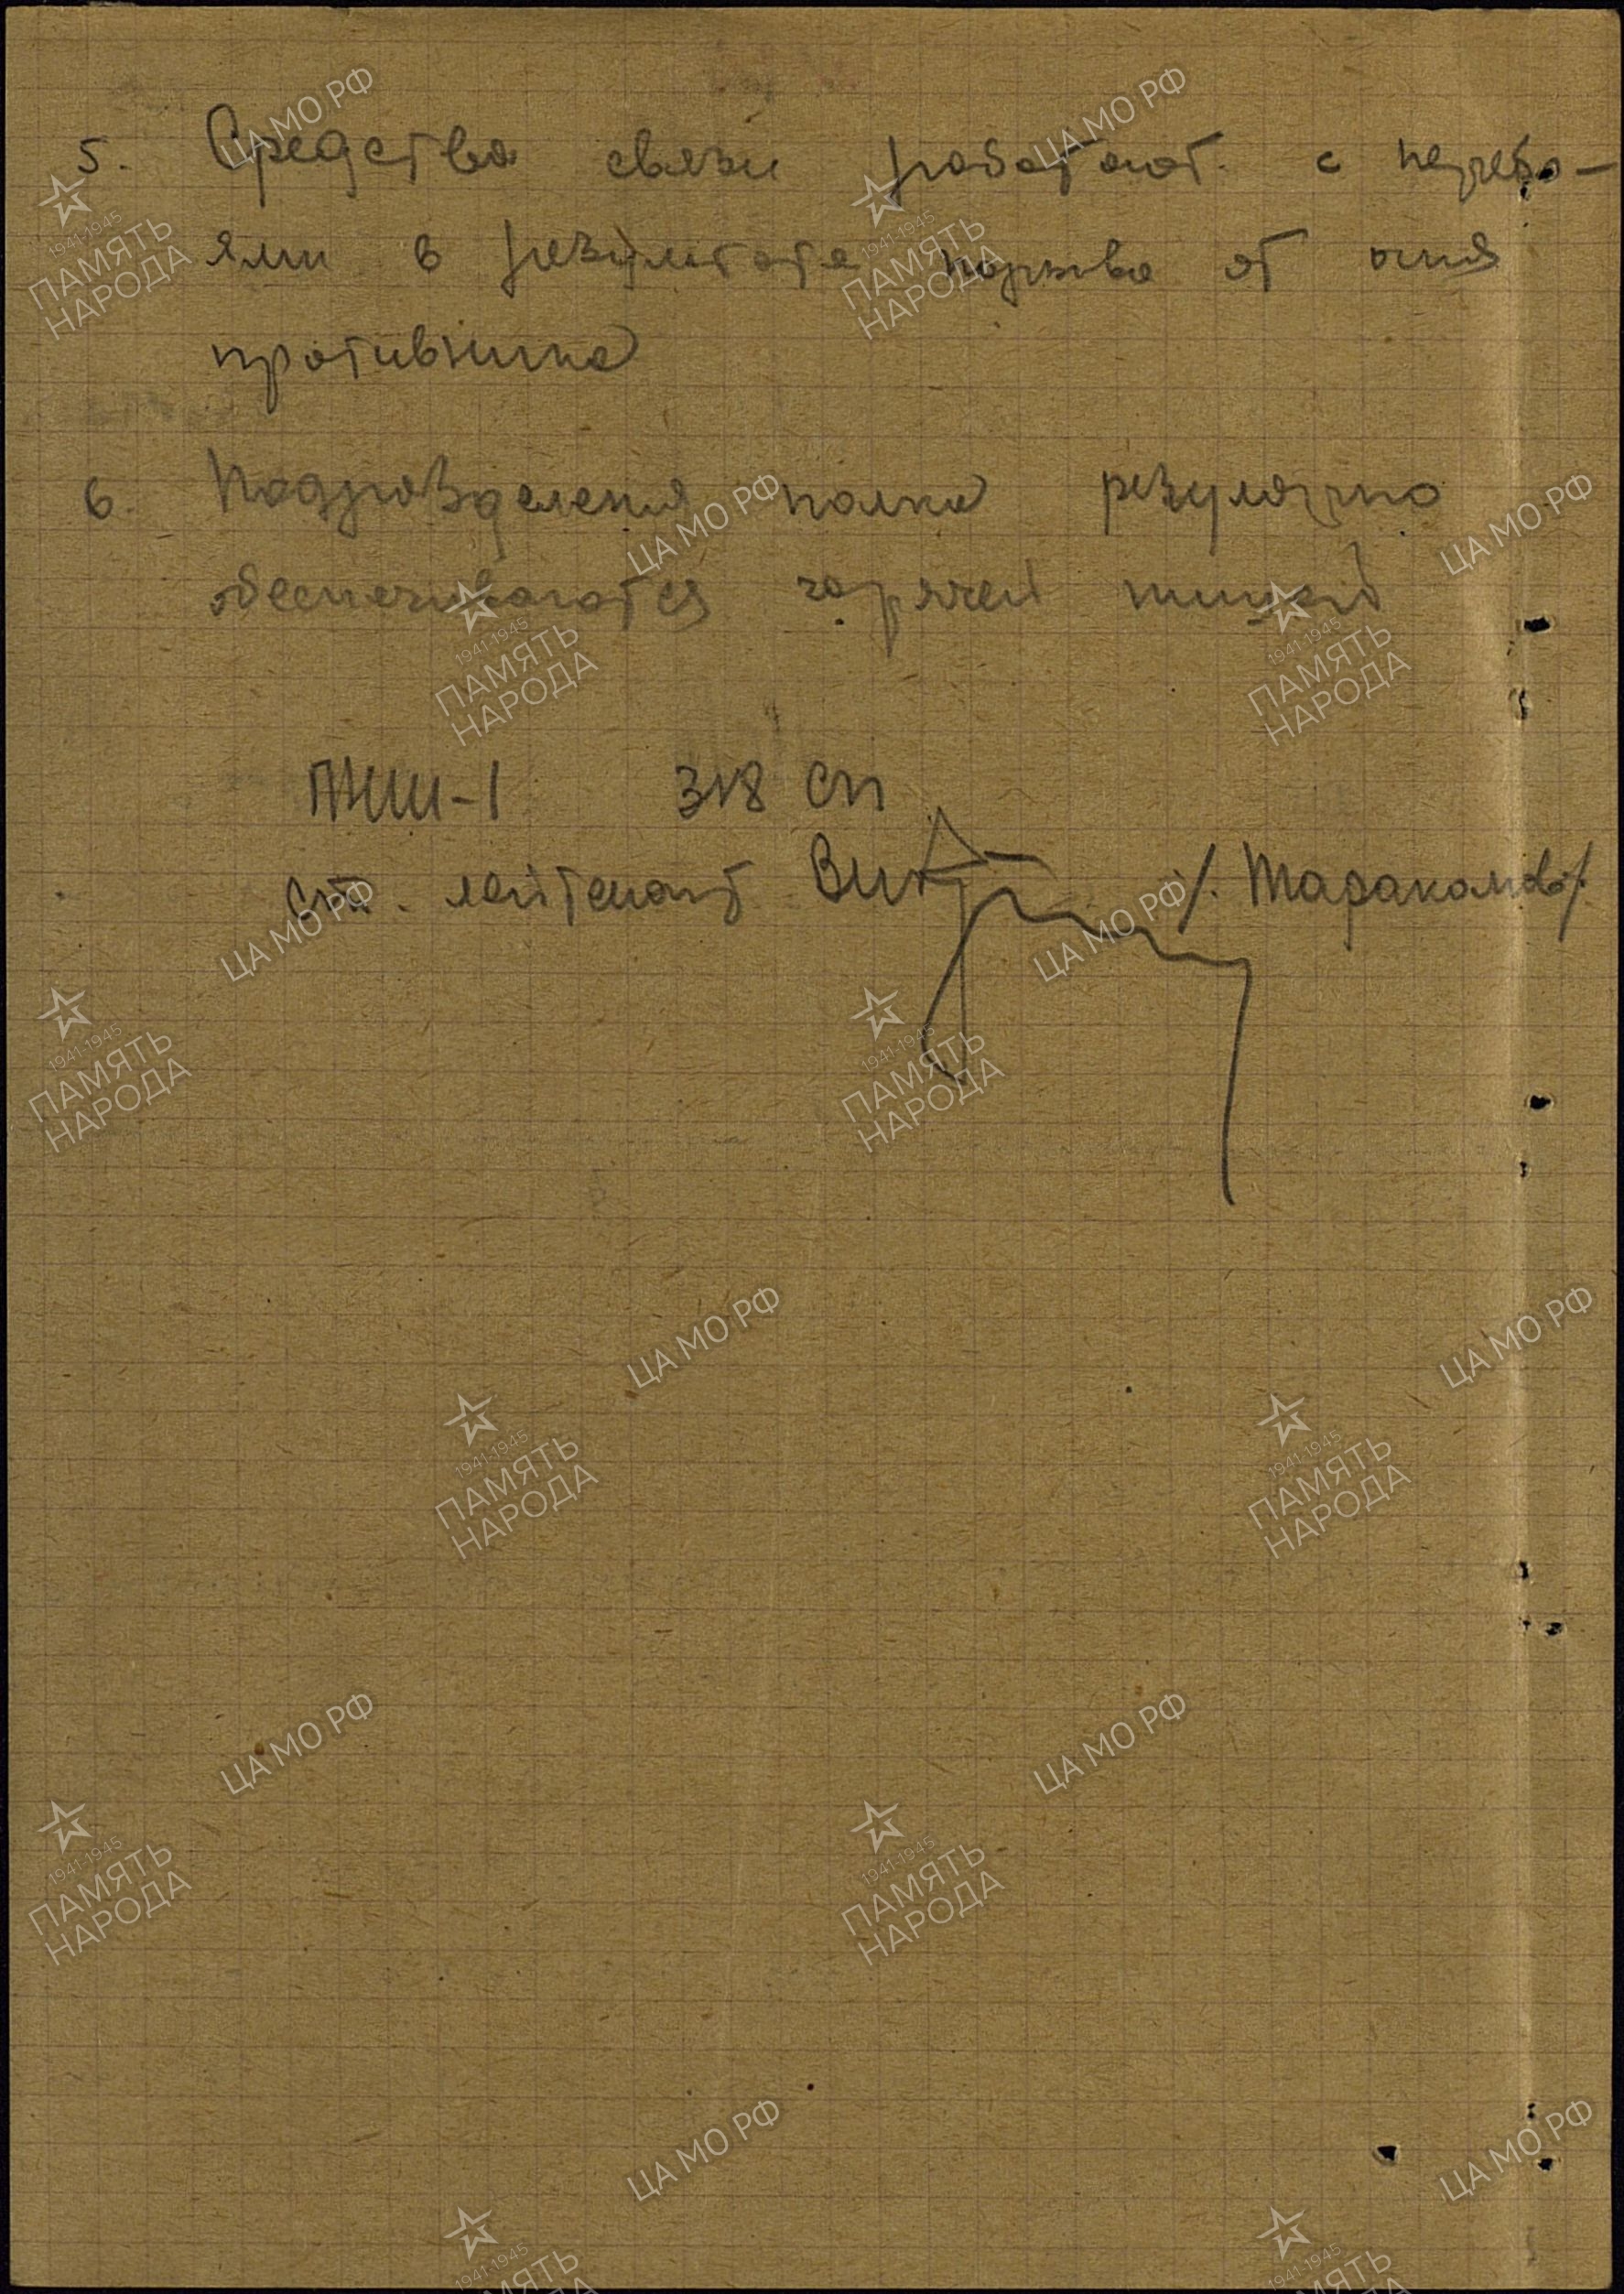 5. Средства связи работают с перебо-
ями в результате порыва от огня
противника
6. Подразделения полка регулярно
обеспечиваются горячей пищей
ПНШ-1 318 СП
Ст. лейтенант /Тараканов/
ЦА МО РФ
1941-1945
ПАМЯТЬ
НАРОДА